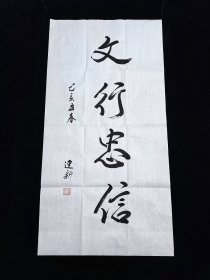 文行忠信
己亥立春
建新